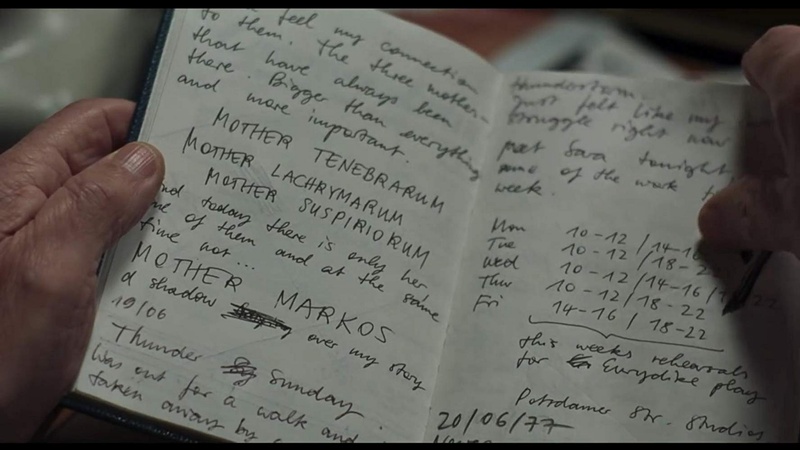 feel my connection
to them. The three mother-
that have always been
there. Bigger than everything
and more important.
MOTHER TENEBRARUM
MOTHER LACHRYMARUM
MOTHER SUSPIRIORUM
And today there is only her,
one of them and at the same
time not...
MOTHER MARKOS
a shadow over my story
19/06
Thunder Sunday.
Was out for a walk and
taken away by a
thunderstorm.
Just felt like my
struggle right now
meet Sara tonight
some of the work
week.
Mon 10-12 / 14-16
Tue 10-12 / 18-22
Wed 10-12 / 14-16 / 22
Thur 10-12 / 18-22
Fri 14-16 / 18-22
this weeks rehearsals
for Eurydike play
Potsdamer Str. Studios
20/06/77